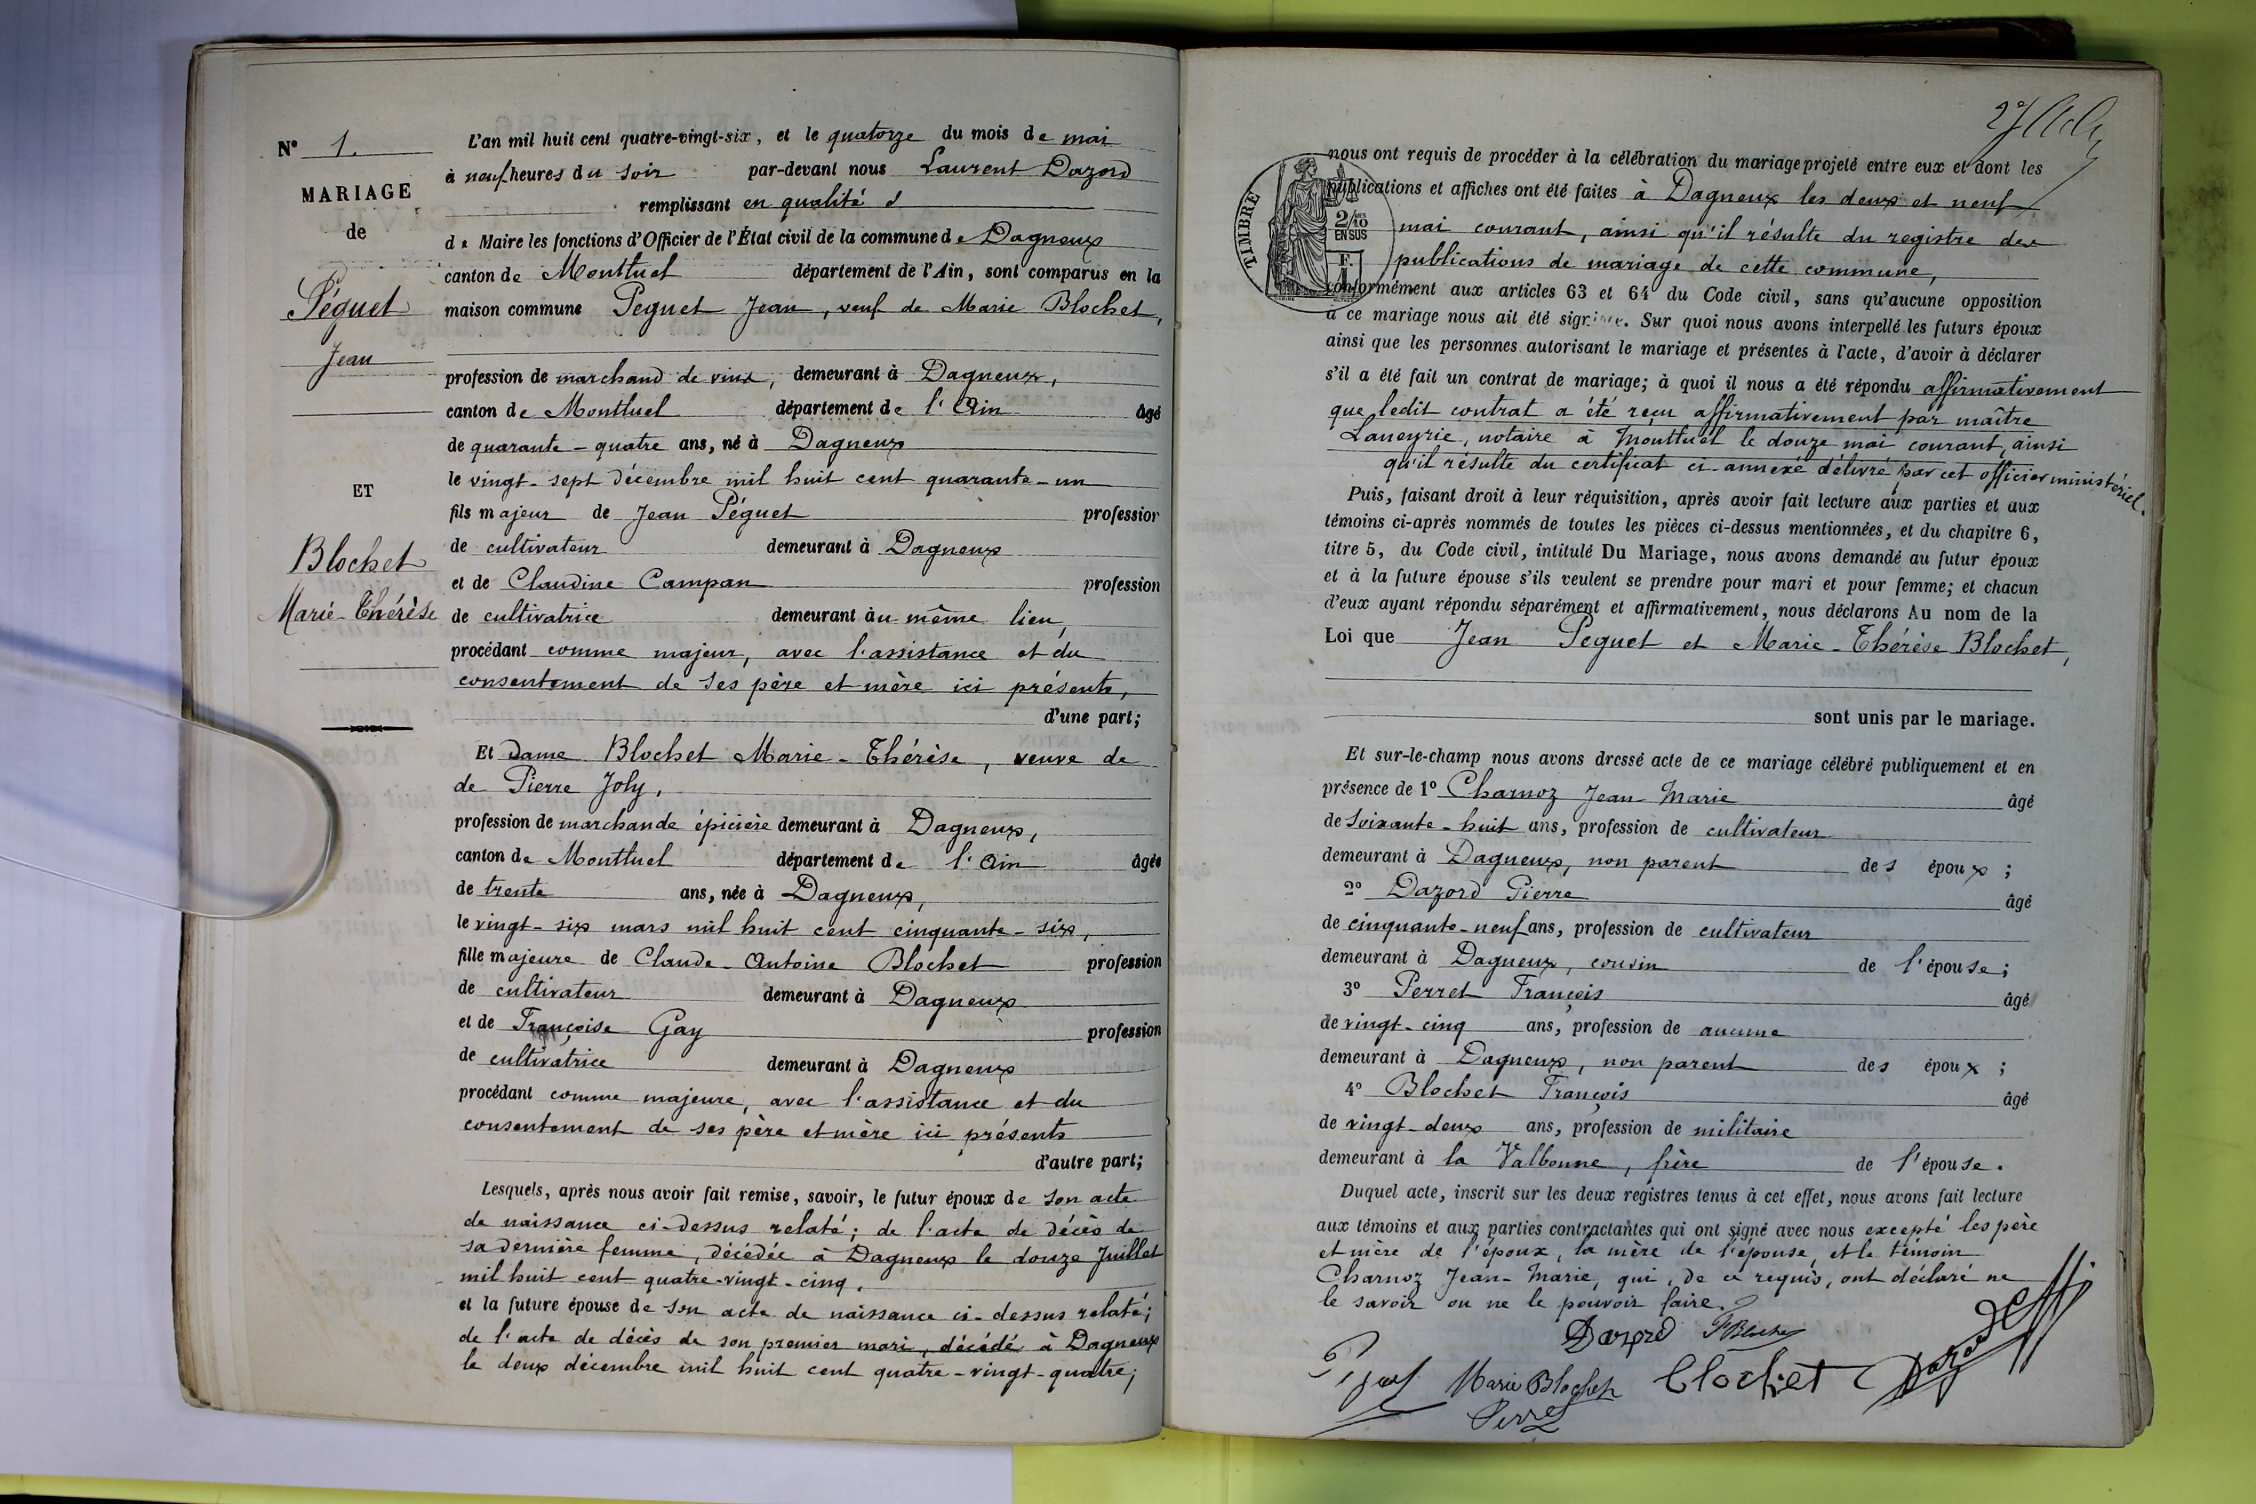 N° 1.
MARIAGE
de
Péguet
Jean
ET
Blochet
Marie-Thérèse
L'an mil huit cent quatre-vingt-six, et le quatorze du mois de mai
à neuf heures du soir par-devant nous Laurent Dazord
remplissant en qualité
de Maire les fonctions d'Officier de l'État civil de la commune de Dagneux
canton de Montluel département de l'Ain, sont comparus en la
maison commune Peguet Jean, veuf de Marie Blochet,
profession de marchand de vins, demeurant à Dagneux,
canton de Montluel département de l'Ain âgé
de quarante-quatre ans, né à Dagneux
le vingt-sept décembre mil huit cent quarante-un
fils majeur de Jean Péguet profession
de cultivateur demeurant à Dagneux
et de Claudine Campan profession
de cultivatrice demeurant au même lieu,
procédant comme majeur, avec l'assistance et du
consentement de ses père et mère ici présents,
d'une part;
Et Dame Blochet Marie-Thérèse, veuve de
de Pierre Joly,
profession de marchande épicière demeurant à Dagneux,
canton de Montluel département de l'Ain âgée
de trente ans, née à Dagneux,
le vingt-six mars mil huit cent cinquante-six,
fille majeure de Claude-Antoine Blochet profession
de cultivateur demeurant à Dagneux
et de Françoise Gay profession
de cultivatrice demeurant à Dagneux
procédant comme majeure, avec l'assistance et du
consentement de ses père et mère ici présents
d'autre part;
Lesquels, après nous avoir fait remise, savoir, le futur époux de son acte
de naissance ci-dessus relaté; de l'acte de décès de
sa dernière femme, décédée à Dagneux le douze Juillet
mil huit cent quatre-vingt-cinq.
et la future épouse de son acte de naissance ci-dessus relaté;
de l'acte de décès de son premier mari, décédé à Dagneux
le deux décembre mil huit cent quatre-vingt-quatre;
nous ont requis de procéder à la célébration du mariage projeté entre eux et dont les
publications et affiches ont été faites à Dagneux les deux et neuf
mai courant, ainsi qu'il résulte du registre des
publications de mariage de cette commune,
conformément aux articles 63 et 64 du Code civil, sans qu'aucune opposition
à ce mariage nous ait été signifiée. Sur quoi nous avons interpellé les futurs époux
ainsi que les personnes autorisant le mariage et présentes à l'acte, d'avoir à déclarer
s'il a été fait un contrat de mariage; à quoi il nous a été répondu affirmativement
que ledit contrat a été reçu affirmativement par maître
Laneyrie, notaire à Montluel le douze mai courant, ainsi
qu'il résulte du certificat ci-annexé délivré par cet officier ministériel.
TIMBRE
2/10
EN SUS
Puis, faisant droit à leur réquisition, après avoir fait lecture aux parties et aux
témoins ci-après nommés de toutes les pièces ci-dessus mentionnées, et du chapitre 6,
titre 5, du Code civil, intitulé Du Mariage, nous avons demandé au futur époux
et à la future épouse s'ils veulent se prendre pour mari et pour femme; et chacun
d'eux ayant répondu séparément et affirmativement, nous déclarons Au nom de la
Loi que Jean Peguet et Marie-Thérèse Blochet,
sont unis par le mariage.
Et sur-le-champ nous avons dressé acte de ce mariage célébré publiquement et en
présence de 1° Charnoz Jean-Marie âgé
de soixante-huit ans, profession de cultivateur
demeurant à Dagneux, non parent des époux;
2° Dazord Pierre âgé
de cinquante-neuf ans, profession de cultivateur
demeurant à Dagneux, cousin de l'épouse;
3° Perret François âgé
de vingt-cinq ans, profession de aucune
demeurant à Dagneux, non parent des époux;
4° Blochet François âgé
de vingt-deux ans, profession de militaire
demeurant à la Valbonne, frère de l'épouse.
Duquel acte, inscrit sur les deux registres tenus à cet effet, nous avons fait lecture
aux témoins et aux parties contractantes qui ont signé avec nous excepté les père
et mère de l'époux, la mère de l'épouse, et le témoin
Charnoz Jean-Marie, qui, de ce requis, ont déclaré ne
le savoir ou ne le pouvoir faire.
Dazord F Blochet
Marie Blochet Blochet Dazord
Perret